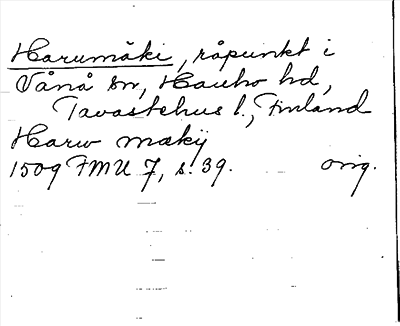 Harumäki, råpunkt i
Vånå sn, Hauho hd,
Tavastehus l., Finland
Harw makij
1509 FMU 7, s. 39. orig.